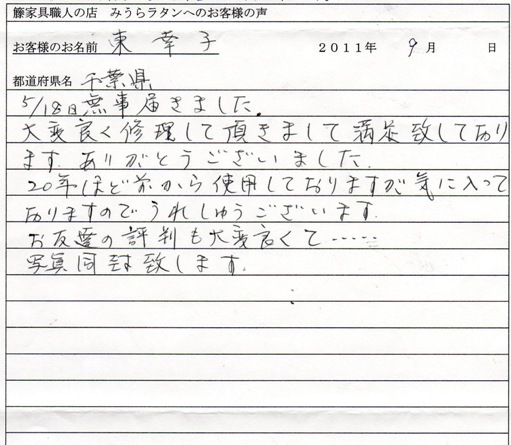 籐家具職人の店 みうらラタンへのお客様の声
お客様のお名前 東 幸子 2011年 9月 日
都道府県名 千葉県
5/18日無事届きました.
大変良く修理して頂きまして満足致しており
ます. ありがとうございました.
20年ほど前から使用しておりますが気に入って
おりますのでうれしゅうございます.
お友達の評判も大変良くて……
写真同封致します.